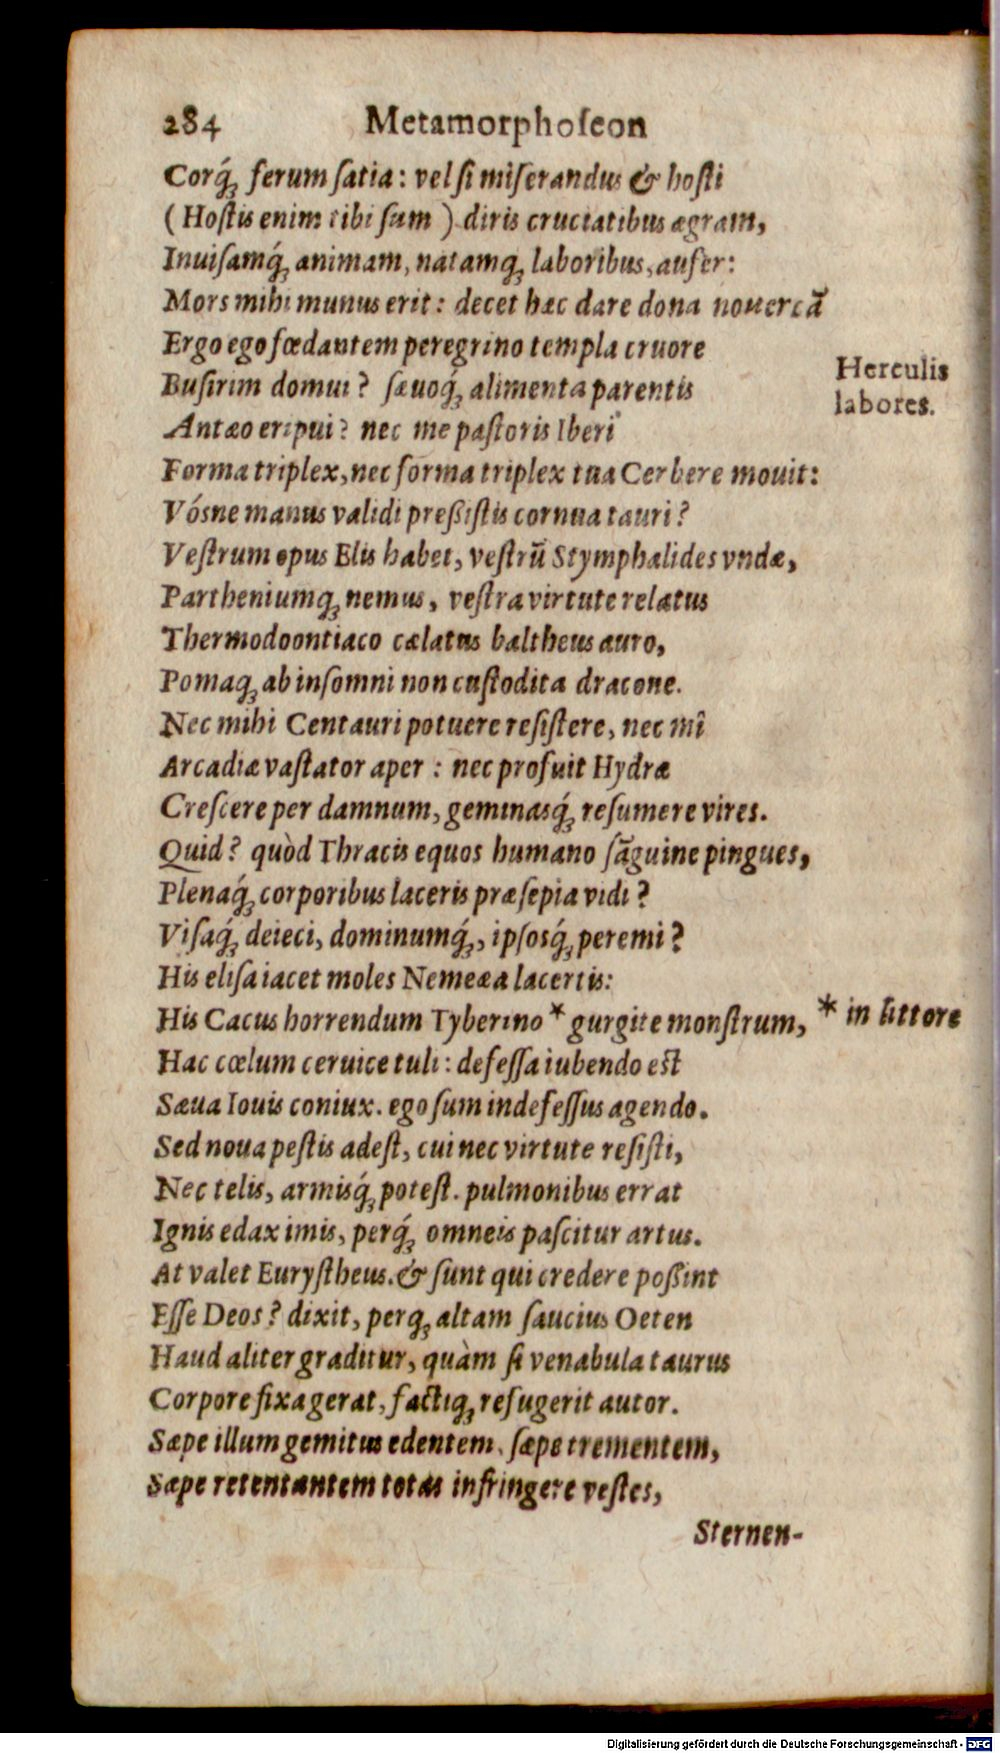 284 Metamorphoſeon
Corq́ꝫ ferum ſatia: vel ſi miſerandus & hoſti
(Hoſtis enim tibi ſum) diris cruciatibus ægram,
Inuiſamq́ꝫ animam, natamqꝫ laboribus, aufer:
Mors mihi munus erit: decet hæc dare dona nouercã
Ergo ego fœdantem peregrino templa cruore
Buſirim domui? ſæuoq́ꝫ alimenta parentis
Antæo eripui? nec me paſtoris Iberi
Forma triplex, nec forma triplex tua Cerbere mouit:
Vósne manus validi preßiſtis cornua tauri?
Veſtrum opus Elis habet, veſtrũ Stymphalides vndæ,
Partheniumqꝫ nemus, veſtra virtute relatus
Thermodoontiaco cælatus baltheus auro,
Pomaqꝫ ab inſomni non cuſtodita dracone.
Nec mihi Centauri potuere reſiſtere, nec mî
Arcadiæ vaſtator aper: nec profuit Hydræ
Creſcere per damnum, geminasq́ꝫ reſumere vires.
Quid? quòd Thracis equos humano ſãguine pingues,
Plenaq́ꝫ corporibus laceris præſepia vidi?
Viſaq́ꝫ deieci, dominumq́ꝫ, ipſosq́ꝫ peremi?
His eliſa iacet moles Nemeæa lacertis:
His Cacus horrendum Tyberino * gurgite monſtrum,
Hac cœlum ceruice tuli: defeſſa iubendo eſt
Sæua Iouis coniux. ego ſum indefeſſus agendo.
Sed noua peſtis adeſt, cui nec virtute reſiſti,
Nec telis, armisq́ꝫ poteſt. pulmonibus errat
Ignis edax imis, perq́ꝫ omneis paſcitur artus.
At valet Euryſtheus. & ſunt qui credere poßint
Eſſe Deos? dixit, perqꝫ altam ſaucius Oeten
Haud aliter graditur, quàm ſi venabula taurus
Corpore fixa gerat, factiqꝫ refugerit autor.
Sæpe illum gemitus edentem, ſæpe trementem,
Sæpe retentantem totas infringere veſtes,
Sternen-
Herculis
labores.
* in littore
Digitalisierung gefördert durch die Deutsche Forschungsgemeinschaft - DFG